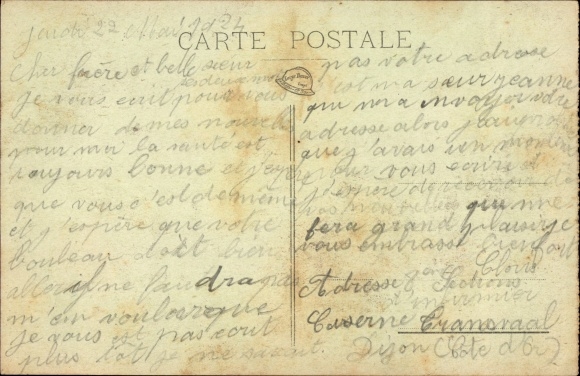 jeudi 22 Mai 1924
CARTE POSTALE
Cher frère et belle sœur
je vous écrit pour vous
donner de mes nouvelles
pour moi la santé est
toujours bonne et j'espère
que vous s'est de même
et j'espère que votre
bouleau doit bien
aller il ne faudra pas
m'en vouloir que
je vous est pas écrit
plus tôt je ne savait
pas votre adresse
c'est ma sœur jeanne
qui m'a envoyer votre
adresse alors
que j'avais un moment
pour vous écrire et
j'espère de recevoir de
vos nouvelles qui me
fera grand plaisir je
vous embrasse bien fort
Clovis
Adresse Sections
infirmier
Caserne Transvaal
Dijon (Côte d'Or)